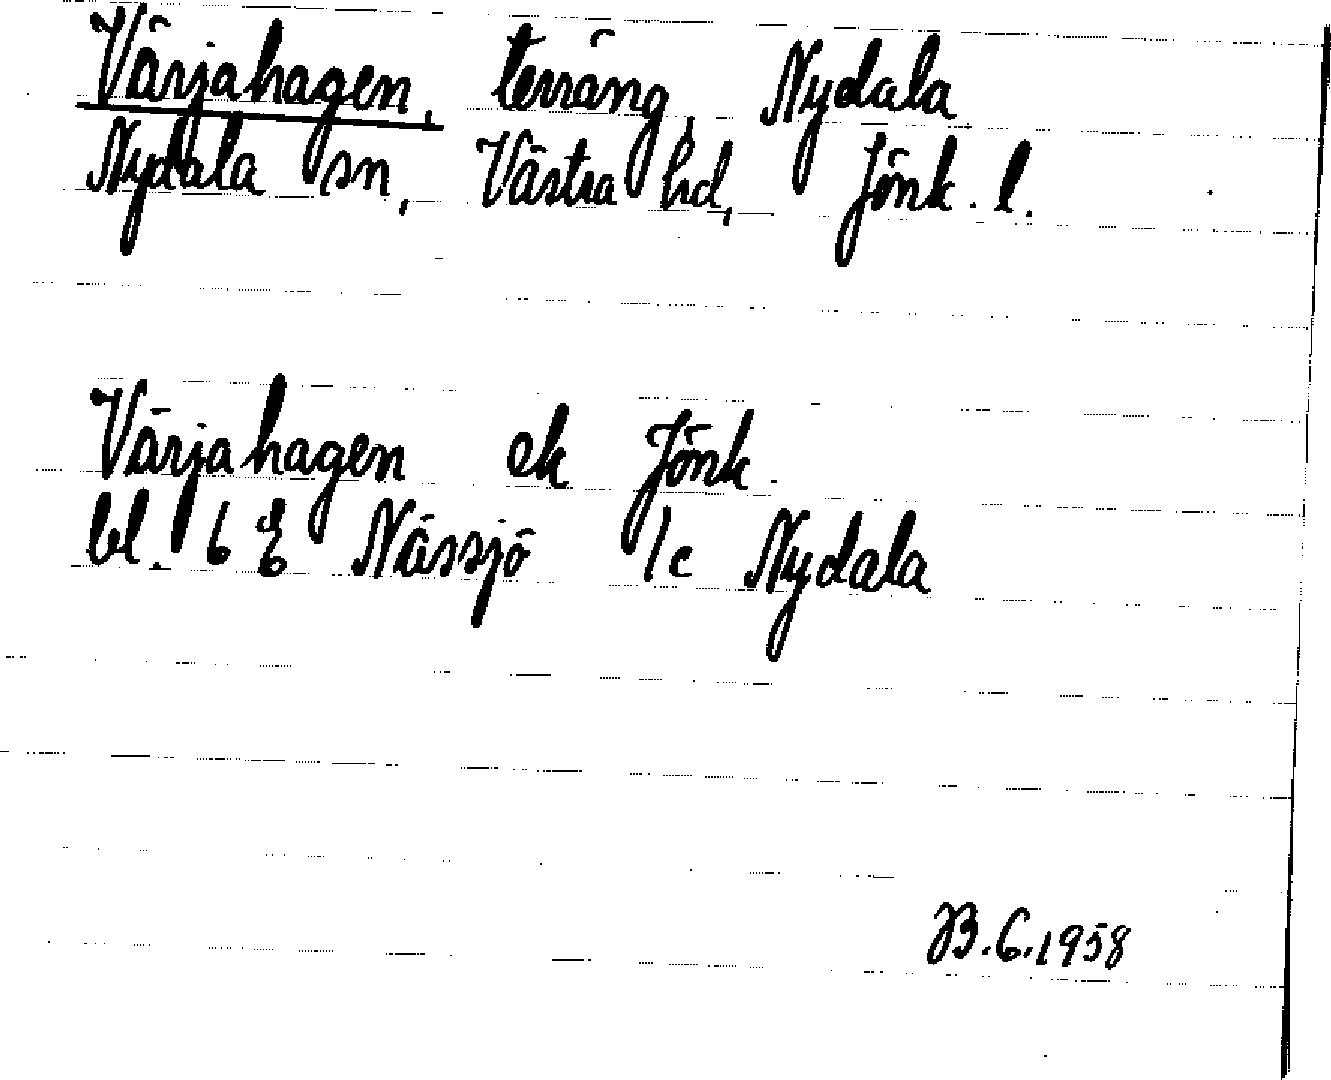 Värjahagen, terräng, Nydala
Nydala sn, Västra hd, Jönk. l.
Värjahagen ek Jönk.
bl. 6 E Nässjö 1c Nydala
B.G.1958